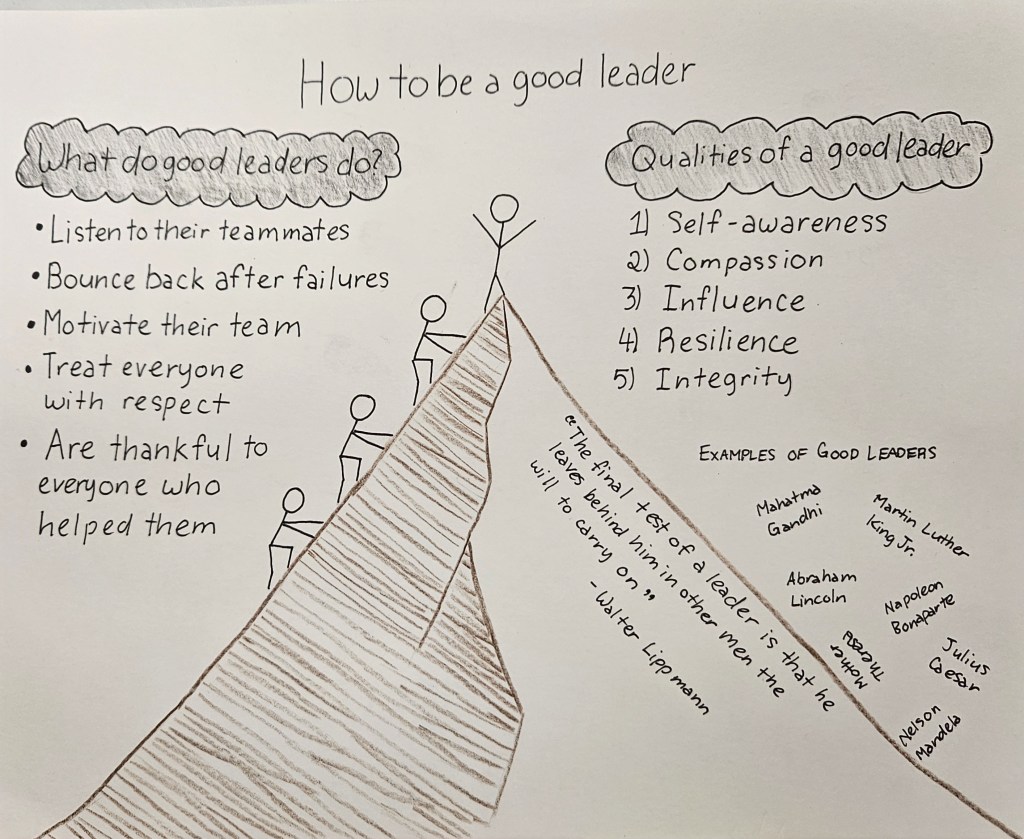 How to be a good leader
What do good leaders do?
• Listen to their teammates
• Bounce back after failures
• Motivate their team
• Treat everyone
with respect
• Are thankful to
everyone who
helped them
Qualities of a good leader
1) Self-awareness
2) Compassion
3) Influence
4) Resilience
5) Integrity
"The final test of a leader is that he
leaves behind him in other men the
will to carry on"
- Walter Lippmann
EXAMPLES OF GOOD LEADERS
Mahatma
Gandhi
Martin Luther
King Jr.
Abraham
Lincoln
Napoleon
Bonaparte
Mother
Theresa
Julius
Caesar
Nelson
Mandela